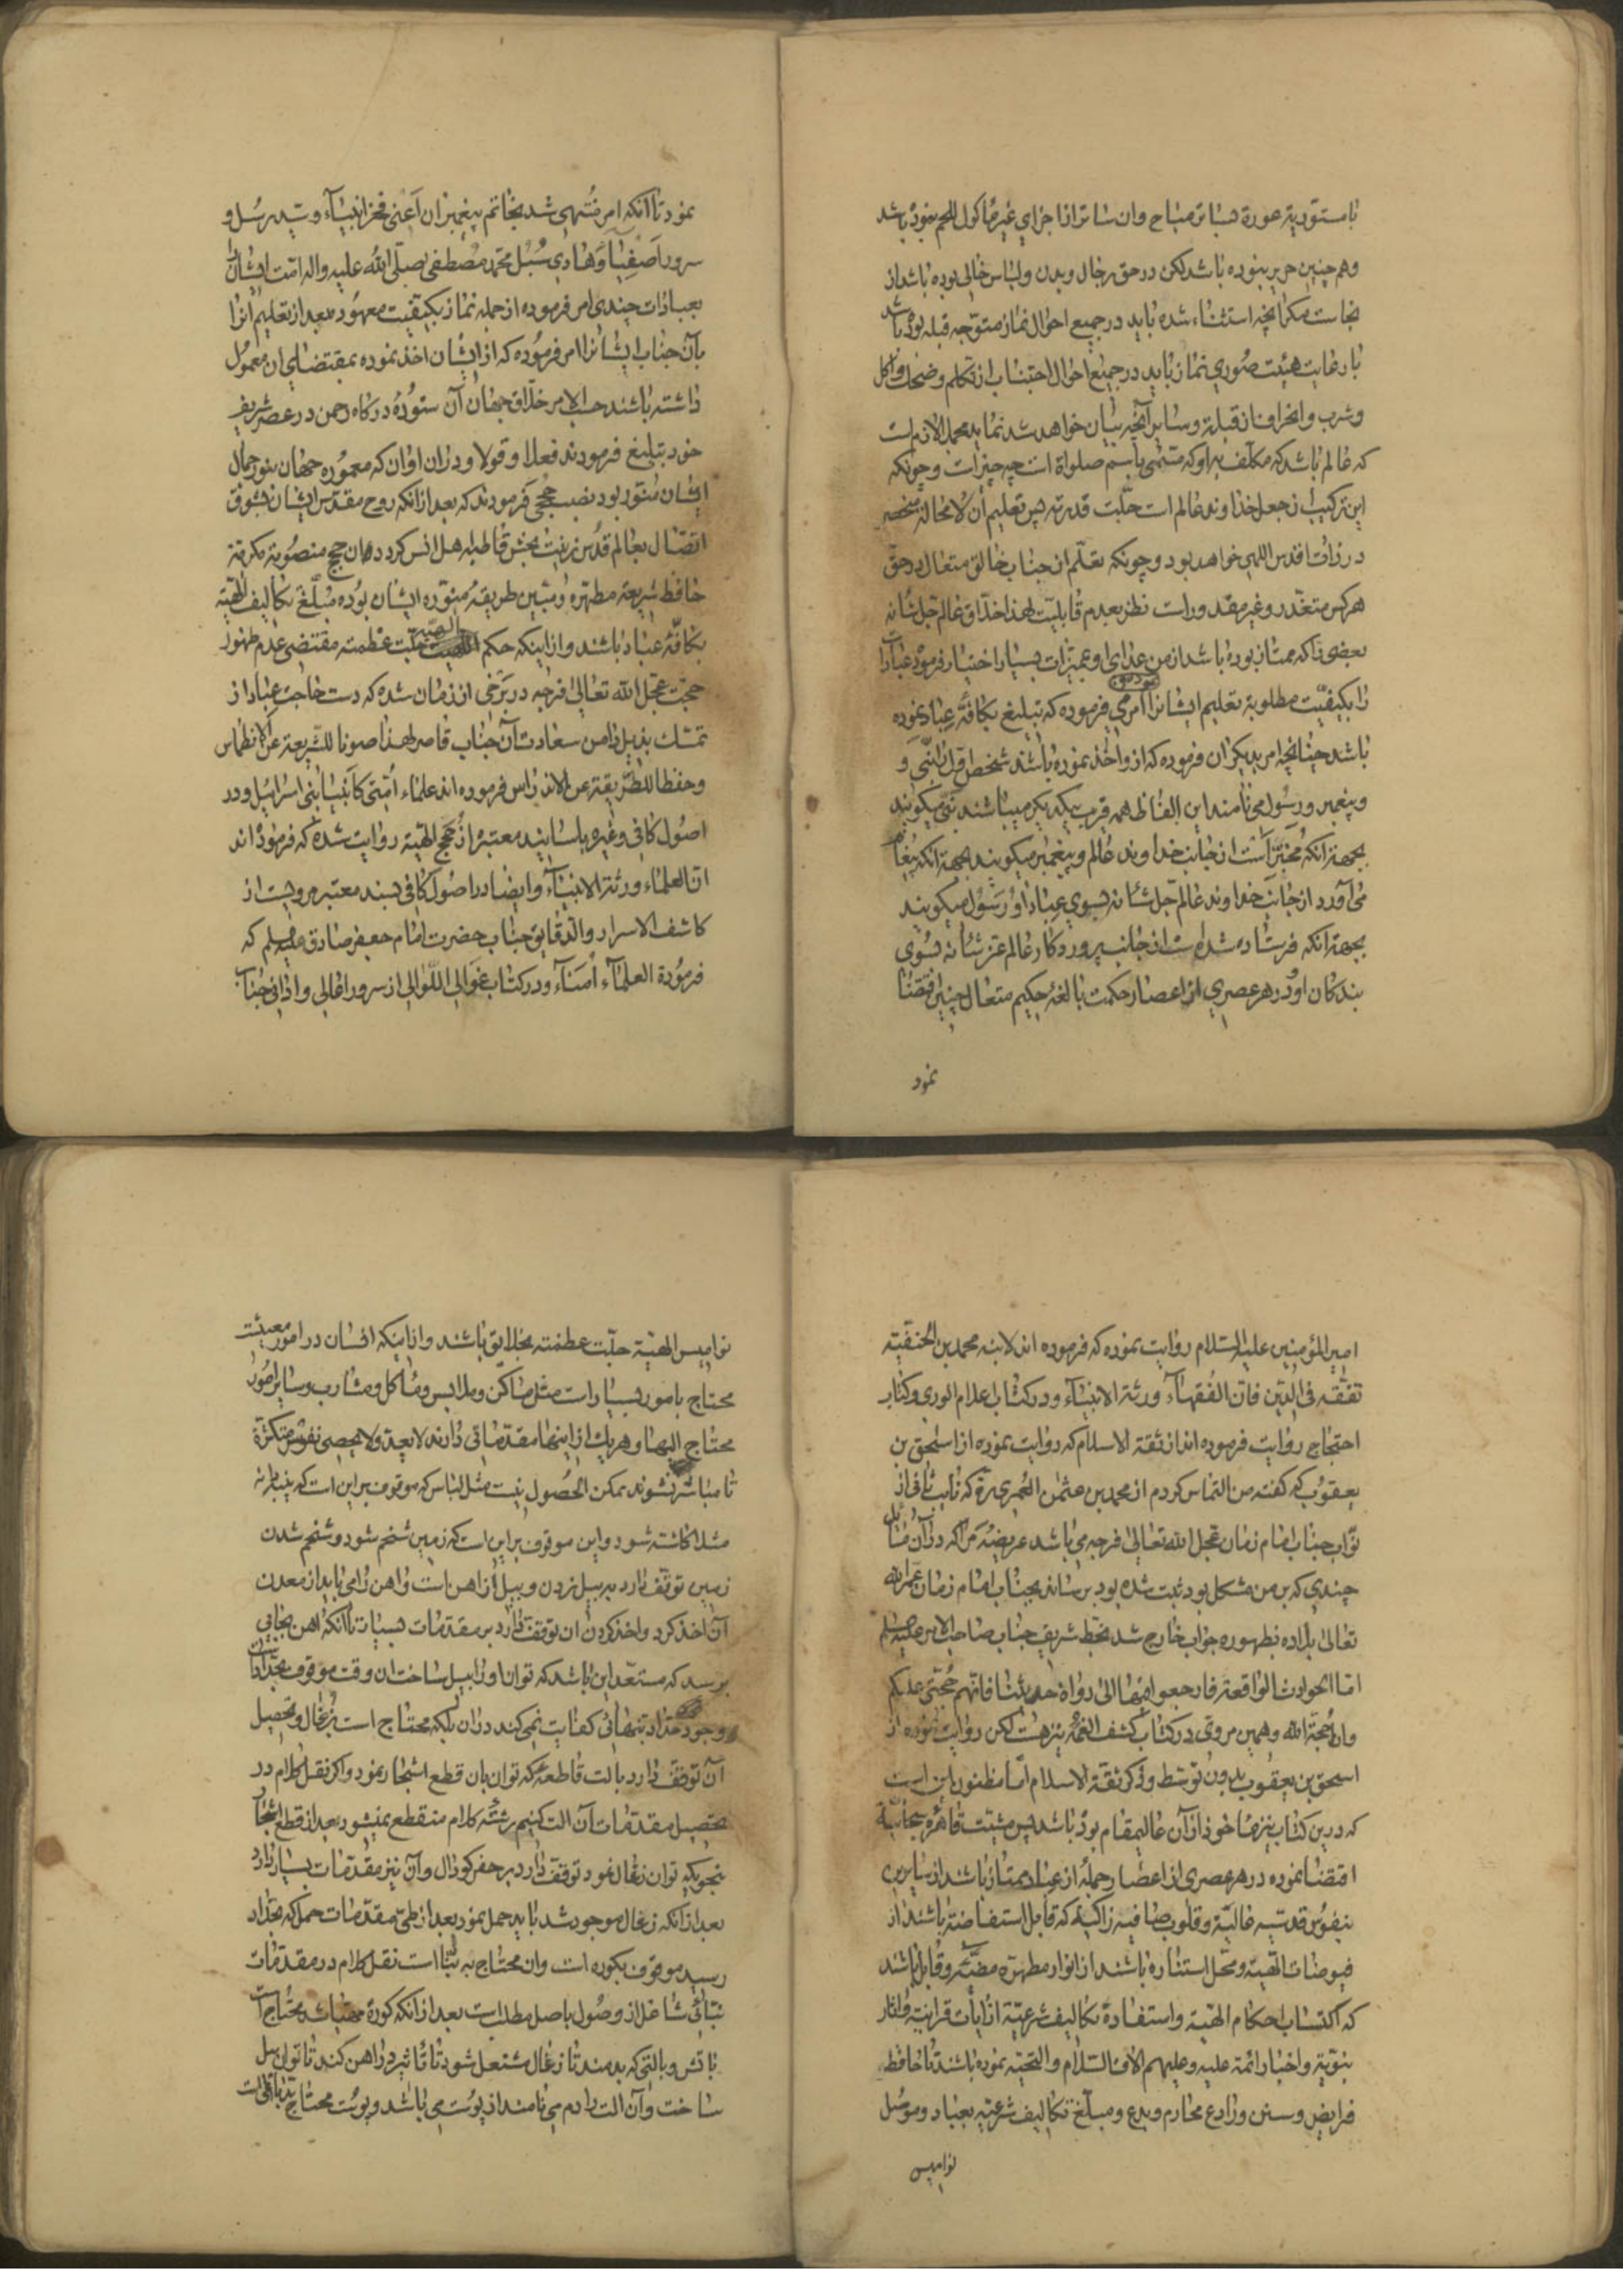 با مستوریة عورة بساتر مباح وان ساتر از اجزاي غیر مأکول اللحم نبوده باشد
وهم چنین حریر نبوده باشد لکن در حق رجال وبدن ولباس خالی بوده باشد از
نجاست مکر آنچه استثناء شده باید در جمیع احوال نماز متوجه قبله بوده باشد
با رعایت هیئت صوري نماز باید در جمیع احوال اجتناب از تکلم وضحك واکل
وشرب وانحراف از قبله وسایر آنچه بیان خواهد شد نماید محملا لازم است
که عالم باشد که مکلف به او که مسمی باسم صلواة است چه چیز است وچونکه
این ترکیب از جعل خداوند عالم است جلّت قدرته پس تعلیم آن لا محاله منحصر
در ذات اقدس اللهی خواهد بود وچونکه تعلّم از جناب خالق متعال در حق
هرکس متعذّر وغیر مقدور است نظر بعدم قابلیّت لهذا خلّاق عالم جلّ شانه
بعضی را که ممتاز بوده باشد از من عداي او بممیّزات بسیار اختیار فرموده عبادات
را بکیفیّت مطلوبه تعلیم ایشان امر می فرموده که تبلیغ بکافّه عباد نموده
باشد چنانچه امر بدیکران فرموده که از او اخذ نموده باشند شخص اول را نبی و
وپیغمبر ورسول می نامند این الفاظ همه قریب بیکدیکر میباشند نبی میکویند
بجهة آنکه مُخبِر است از جانب خداوند عالم وپیغمبر میکویند بجهة آنکه پیغام
می آورد از جانب خداوند عالم جلّ شانه بسوي عباد او ورسول میکویند
بجهة آنکه فرستاده شده است از جانب پروردکار عالم عز شانه بسوي
بندکان او در هر عصري از اعصار حکمت بالغهٔ حکیم متعال چنین اقتضا
نمود
نمود تا آنکه امر منتهی شد بخاتم پیغمبران اَعنی فخر انبیآء وسید رسل و
سرور اَصفیآ وهادي سُبُل محمّد مصطفی صلّی الله علیه واله امّت ایشان را
بعبادات چندي امر فرموده از جمله نماز بکیفیّت معهود بعد از تعلیم آنرا
بآن جناب ایشانرا امر فرموده که از ایشان اخذ نموده بمقتضاي ان معمول
داشته باشند حسب الامر خلّاق جهان آن ستودهٔ درکاه رحمن در عصر شریف
خود تبلیغ فرمودند فعلا وقولا ودر ان اوان که معمورهٔ جهان بنور جمال
ایشان منوّر بود نصب حججی فرمودند که بعد از انکه روح مقدّس ایشان بشوق
اتصال بعالم قدس زینت بخش قاطبه اهل انس کردد همان حجج منصوبه مکرمة
حافظ شریعة مطهّره ومبین طریقهٔ منوّره ایشان بوده مبلّغ تکالیف الهیّه
بکافّه عباد باشند واز اینکه حکم الهیّه جلّت عظمته مقتضی عدم ظهور
حجّت عجّل الله تعالی فرجه در برخی از زمان شده که دست حاجت عباد از
تمسّك بذیل دامن سعادت آن جناب قاصر لهذا صونا للشریعة عن الانطماس
وحفظا للطریقة عن الاندراس فرموده اند علماء اُمّتی کانبیاء بنی اسرائیل ودر
اصول کافی وغیره باسانید معتبره از حجج الهیّه روایت شده که فرموده اند
انّ العلماء ورثة الانبیآء وایضا در اصول کافی بسند معتبر مرویست از
کاشف الاسرار والدقایق جناب حضرت امام جعفر صادق علیه السلم که
فرموده العلمآء اُمنآء ودر کتاب غوالی اللّوالی از سرور اعالی واداني جناب
امیر المؤمنین علیه السلام روایت نموده که فرموده اند لابنه محمد بن الحنفیّه
تفقّه فی الدّین فانّ الفقهآء ورثة الانبیآء ودر کتاب اعلام الوري وکتاب
احتجاج روایت فرموده اند از ثقة الاسلام که روایت نموده از اسحق بن
یعقوب که کفته من التماس کردم از محمد بن عثمن العُمري ره که نایب ثانی از
نوّاب جناب امام زمان عجّل الله تعالی فرجه می باشد عریضهٔ مرا که در آن مسائل
چندي که بر من مشکل بود ثبت شده بود برساند بجناب امام زمان عجّل الله
تعالی بلاده بظهوره جواب خارج شد بخط شریف جناب صاحب الامر علیه السلم
امّا الحوادث الواقعة فارجعوا فیها الی رواة حدیثنا فانهم حُجّتی علیکم
وانا حُجّة الله وهمین مروی در کتاب کشف الغمّه نیز هست لکن روایت نموده از
اسحق بن یعقوب بدون توسط وذکر ثقة الاسلام امّا مظنون این است
که در این کتاب نیز ماخوذ از آن عالیمقام بوده باشد پس مشیّت قاهرهٔ سبحانیّه
اقتضا نموده در هر عصري از اعصار جملهٔ از عباد ممتاز باشند از سایرین
بنفوس قدسیّه عالیّه وقلوب صافیه زاکیه که قابل استفاضه باشند از
فیوضات الهیّه ومحل استناره باشند از انوار مطهّره مضیّه وقابل باشند
که اکتساب احکام الهیّه واستفادة تکالیف شرعیّة از آیات قرانیّه واثار
نبویّه واخبار ائمّه علیه وعلیهم الاف السّلام والتحیّه نموده باشند تا حافظ
فرایض وسنن ورادع محارم وبدع ومبلّغ تکالیف شرعیّه بعباد وموصل
نوامیس
نوامیس الهیّة جلّت عظمته بخلایق باشند واز اینکه انسان در امور معیشت
محتاج بامور بسیار است مثل مساکن وملابس ومأکل ومشارب وسایر امور
محتاج الیها وهر یك از اینها مقدّماتی دارند لا یعد ولا یحصی نفوس متکثرة
تا مباشر نشوند ممکن الحصول نیست مثل لباس که موقوف بر این است که پنبه دانه
مثلا کاشته شود واین موقوف بر این است که زمین شخم شود وشخم شدن
زمین توقّف دارد به بیل زدن وبیل از اهن است واهن را می باید از معدن
آن اخذ کرد واخذ کردن ان توقف دارد بر مقدّمات بسیار تا آنکه اهن بجایی
برسد که مستعدّ این باشد که توان اورا بیل ساخت ان وقت موقوف بحدّاد است
ووجود حدّاد تنهائی کفایت نمی کند در ان بلکه محتاج است بزغال وتحصیل
آن توقّف دارد بآلت قاطعهٔ که توان بان قطع اشجار نمود واکر نقل کلام در
تحصیل مقدّمات آن آلت کنیم رشتهٔ کلام منقطع نمیشود بعد از قطع اشجار
بنحویکه توان زغال نمود توقّف دارد بر حفر کودال وآن نیز مقدّمات بسیار دارد
بعد از آنکه زغال موجود شد باید حمل نمود بعد از طیّ مقدّمات حمل که بحدّاد
رسید موقوف بکوره است وان محتاج به بنّا است نقل کلام در مقدّمات
بنّائی شاغل از وصول باصل مطلب است بعد از آنکه کورهٔ مهیّا شد محتاج است
باتش وبالتی که بدمند تا زغال مشتعل شود تا تاثیر در اهن کند تا توان بیل
ساخت وآن الت را دم می نامند از پوست می باشد وپوست محتاج بدباغی است